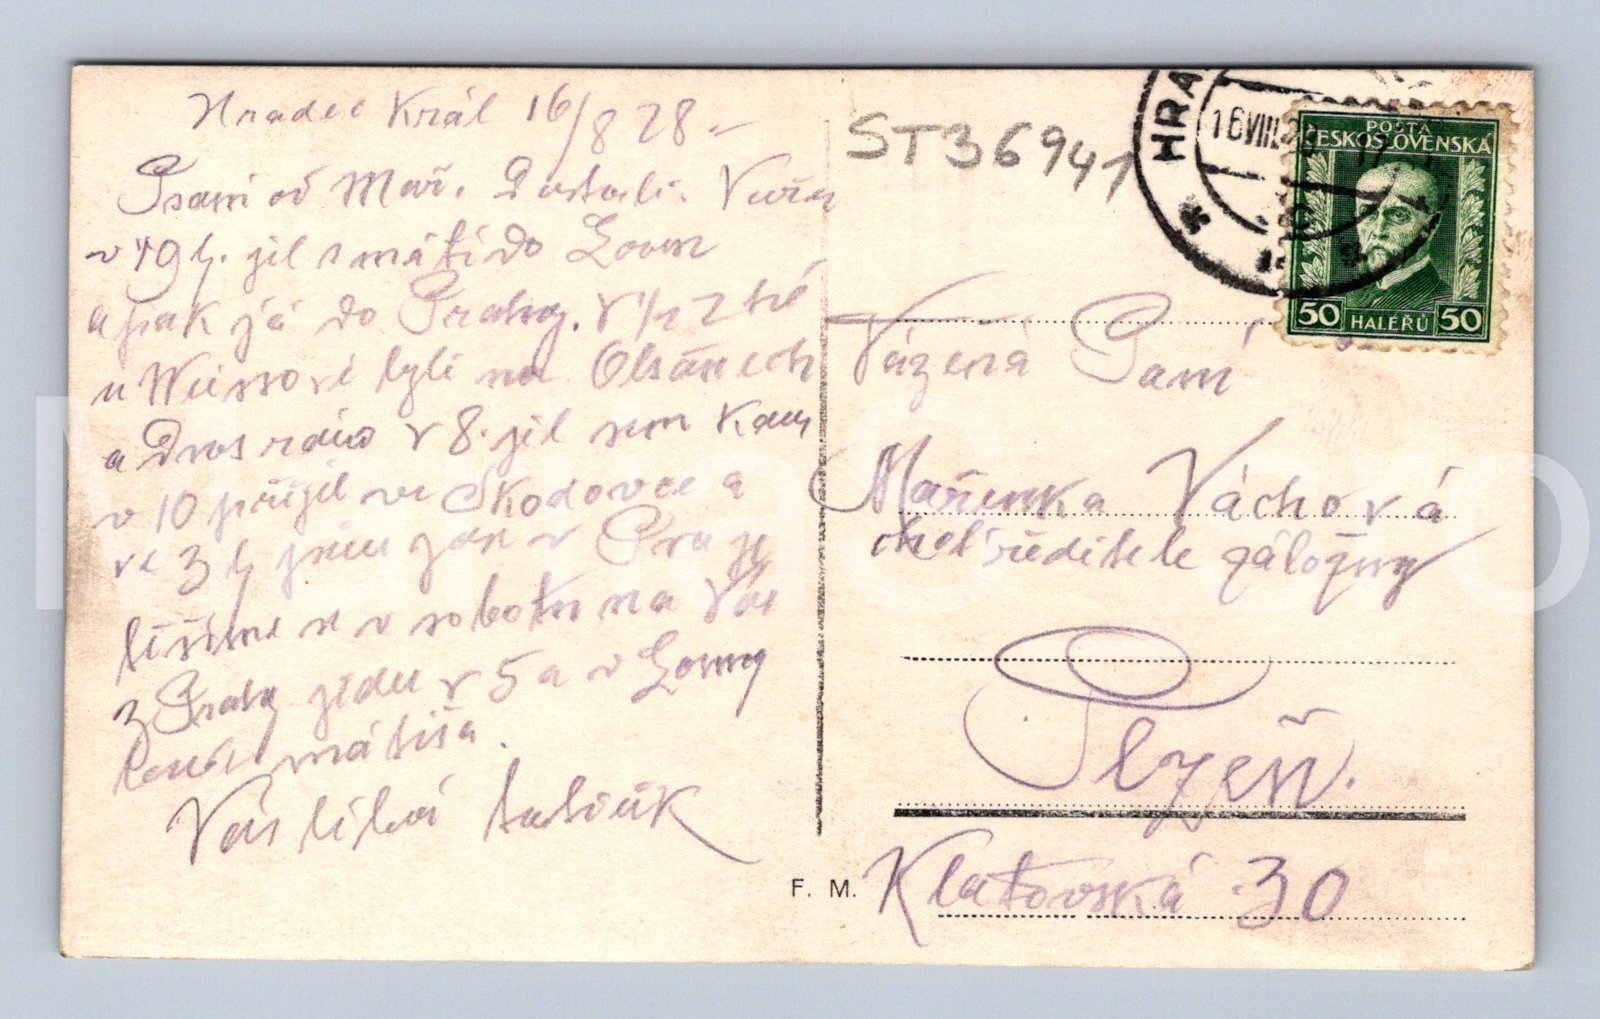 Hradec Král 16/8 28.–
Psaní od Mař. Dostali. Včera
v 19 h. jel s máti do Loun
a pak já do Prahy. V 1/2 7 hé
u Weissové byli na Olšanech
a Dnes ráno v 8. jel sem
v 10 přijel ve Škodovce a
ve 3 h jsem zas v Praze
těšíme se v sobotu na Vás
z Prahy jedu v 5 a v Louny
mátiša.
Váš líbá tatíček
ST36941
HRA
16 VIII 28
POŠTA
ČESKOSLOVENSKÁ
50 HALÉŘŮ 50
Vážená Paní
Mařenka Váchová
choť ředitele záložny
Plzeň.
Klatovská 30
F. M.